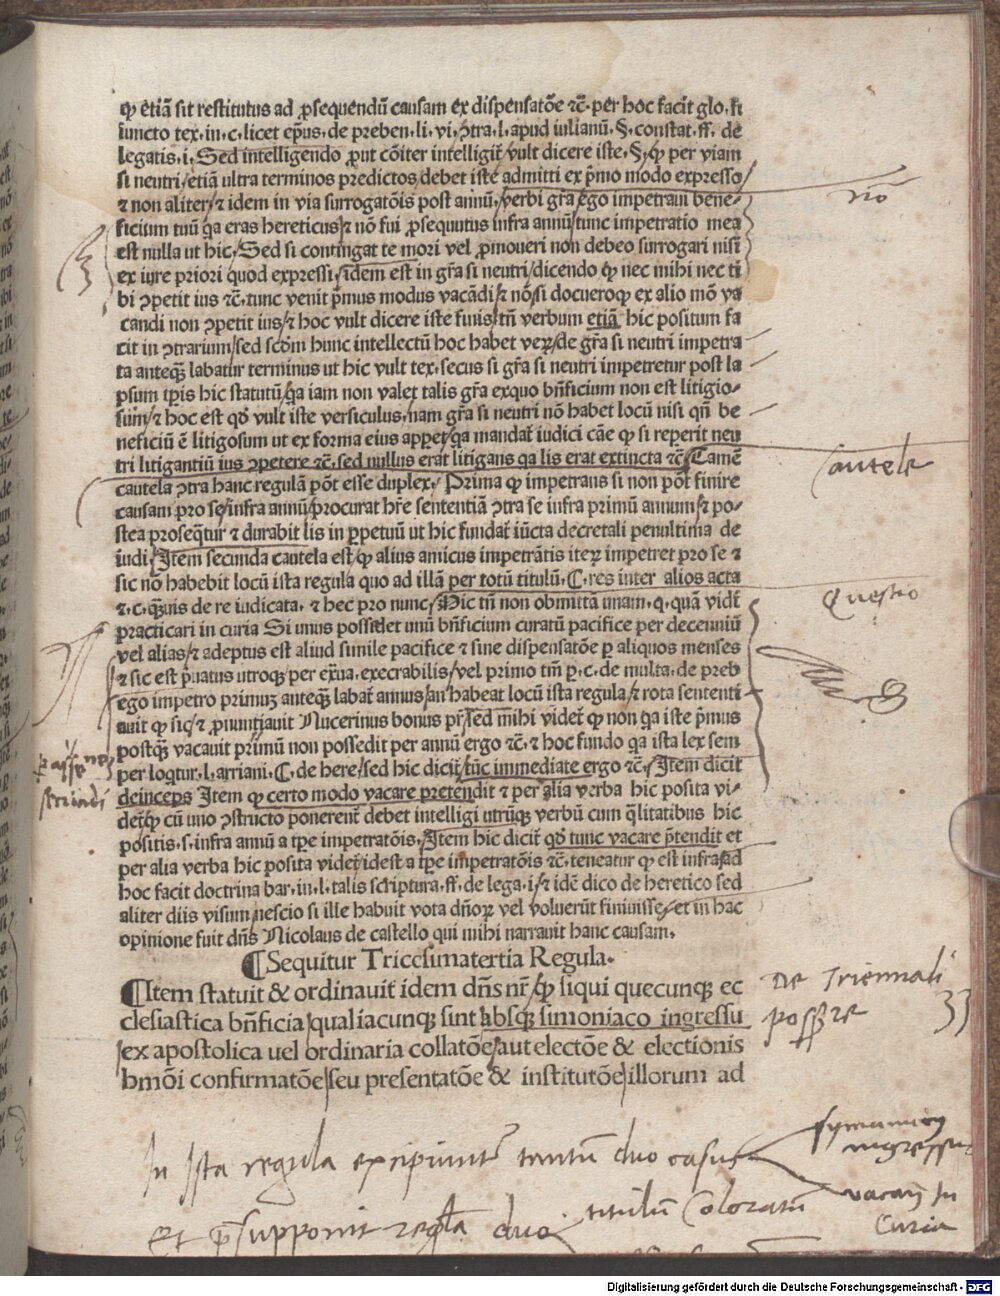 ꝙ etiã sit restitutus ad ꝓsequendũ causam ex dispensatõe ⁊c̃. per hoc facit glo. fi
iuncto tex. in. c. licet ep̃us. de preben. li. vi. ↄtra. l. apud iulianũ. §. constat. ff. de
legatis. i. Sed intelligendo ꝓut cõiter intelligit̃/vult dicere iste. §. ꝙ per viam
si neutri/etiã ultra terminos predictos/debet iste admitti ex p̃mo modo expresso/
⁊ non aliter/⁊ idem in via surrogatõis post annũ/verbi gr̃a ego impetraui bene-
ficium tuũ q̃a eras hereticus/⁊ nõ fui ꝓsequutus infra annũ/tunc impetratio mea
est nulla ut hic/Sed si contingat te mori vel ꝓmoueri non debeo surrogari nisi
ex iure priori quod expressi/idem est in gr̃a si neutri/dicendo ꝙ nec mihi nec ti
bi ↄpetit ius ⁊c̃. tunc venit p̃mus modus vacãdi/⁊ nõ/si docueroꝙ ex alio mõ va
candi non ↄpetit ius/⁊ hoc vult dicere iste finis/tñ verbum etiã hic positum fa
cit in ↄtrarium/sed scdm hunc intellectũ hoc habet veꝝ/de gr̃a si neutri impetra
ta anteqꝫ labatur terminus ut hic vult tex. secus si gr̃a si neutri impetretur post la
psum tp̃is hic statutũ/q̃a iam non valet talis gr̃a exquo bñficium non est litigio-
sum/⁊ hoc est qđ vult iste versiculus/nam gr̃a si neutri nõ habet locũ nisi qñ be
neficiũ ẽ litigosum ut ex forma eius appet/qa mandat̃ iudici cãe ꝙ si reperit neu
tri litigantiũ ius ↄpetere ⁊c̃. sed nullus erat litigans qa lis erat extincta ⁊c̃ Tamẽ
cautela ↄtra hanc regulã põt esse duplex. Prima ꝙ impetrans si non põt finire
causam pro se/infra annũ/procurat hr̃e sententiã ↄtra se infra primũ annum/⁊ po-
stea proseqt̃ur ⁊ durabit lis in ꝑpetuũ ut hic fundat̃ iũcta decretali penultima de
iudi. Item secunda cautela est/ꝙ alius amicus impetrãtis iteꝝ impetret pro se ⁊
sic nõ habebit locũ ista regula quo ad illã per totũ titulũ. C. res inter alios acta
⁊. c. q̃uis de re iudicata. ⁊ hec pro nunc/Hic tñ non obmittã unam. q. quã vidi
practicari in curia Si unus possidet unũ bñficium curatũ pacifice per decenniũ
vel alias/⁊ adeptus est aliud simile pacifice ⁊ sine dispensatõe ꝑ aliquos menses
⁊ sic est p̃uatus utroqꝫ/per ex̃ua. execrabilis/vel primo tm̃ ꝑ. c. de multa. de preb
ego impetro primuꝫ anteqꝫ labat̃ annus/an habeat locũ ista regula/⁊ rota sententi-
auit ꝙ sic/⁊ ꝓnuntiauit Nucerinus bonus pr̃/sed mihi videt̃ ꝙ non q̃a iste p̃mus
postqꝫ vacauit primũ non possedit per annũ ergo ⁊c̃. ⁊ hoc fundo qa ista lex sem
per loqtur. l. arriani. C. de here/sed hic dicit̃/tũc immediate ergo ⁊c̃. Item dicit
deinceps Item ꝙ certo modo vacare pretendit ⁊ per alia verba hic posita vi-
det̃/ꝙ cũ uno ↄstructo ponerent̃ debet intelligi utrũqꝫ verbũ cum q̃litatibus hic
positis. s. infra annũ a tp̃e impetratõis. Item hic dicit̃ qđ tunc vacare p̃tendit et
per alia verba hic posita videt̃/idest a tp̃e impetratõis ⁊c̃. teneatur ꝙ est infra/ad
hoc facit doctrina bar. in. l. talis scriptura. ff. de lega. i/⁊ idẽ dico de heretico sed
aliter diis visum/nescio si ille habuit vota dñoꝝ vel voluerũt finiuisse/et in hac
opinione fuit dñs Nicolaus de castello qui mihi narrauit hanc causam.
¶Sequitur Tricesimatertia Regula.
¶Item statuit & ordinauit idem dñs nr̃/ꝙ siqui quecunqꝫ ec
clesiastica bñficia/qualiacunqꝫ sint/absqꝫ simoniaco ingressu
ex apostolica uel ordinaria collatõe/aut electõe & electionis
hmõi confirmatõe/seu presentatõe & institutõe/illorum ad
nõ
Cautele
Questio
De Triennali
possessore
33
In ista regula excipiuntur tantũ duo casus
symoniacꝰ
ingressus
vacans In
Curia
et p̃supponit regula duo
titulũ Coloratũ
Digitalisierung gefördert durch die Deutsche Forschungsgemeinschaft - DFG